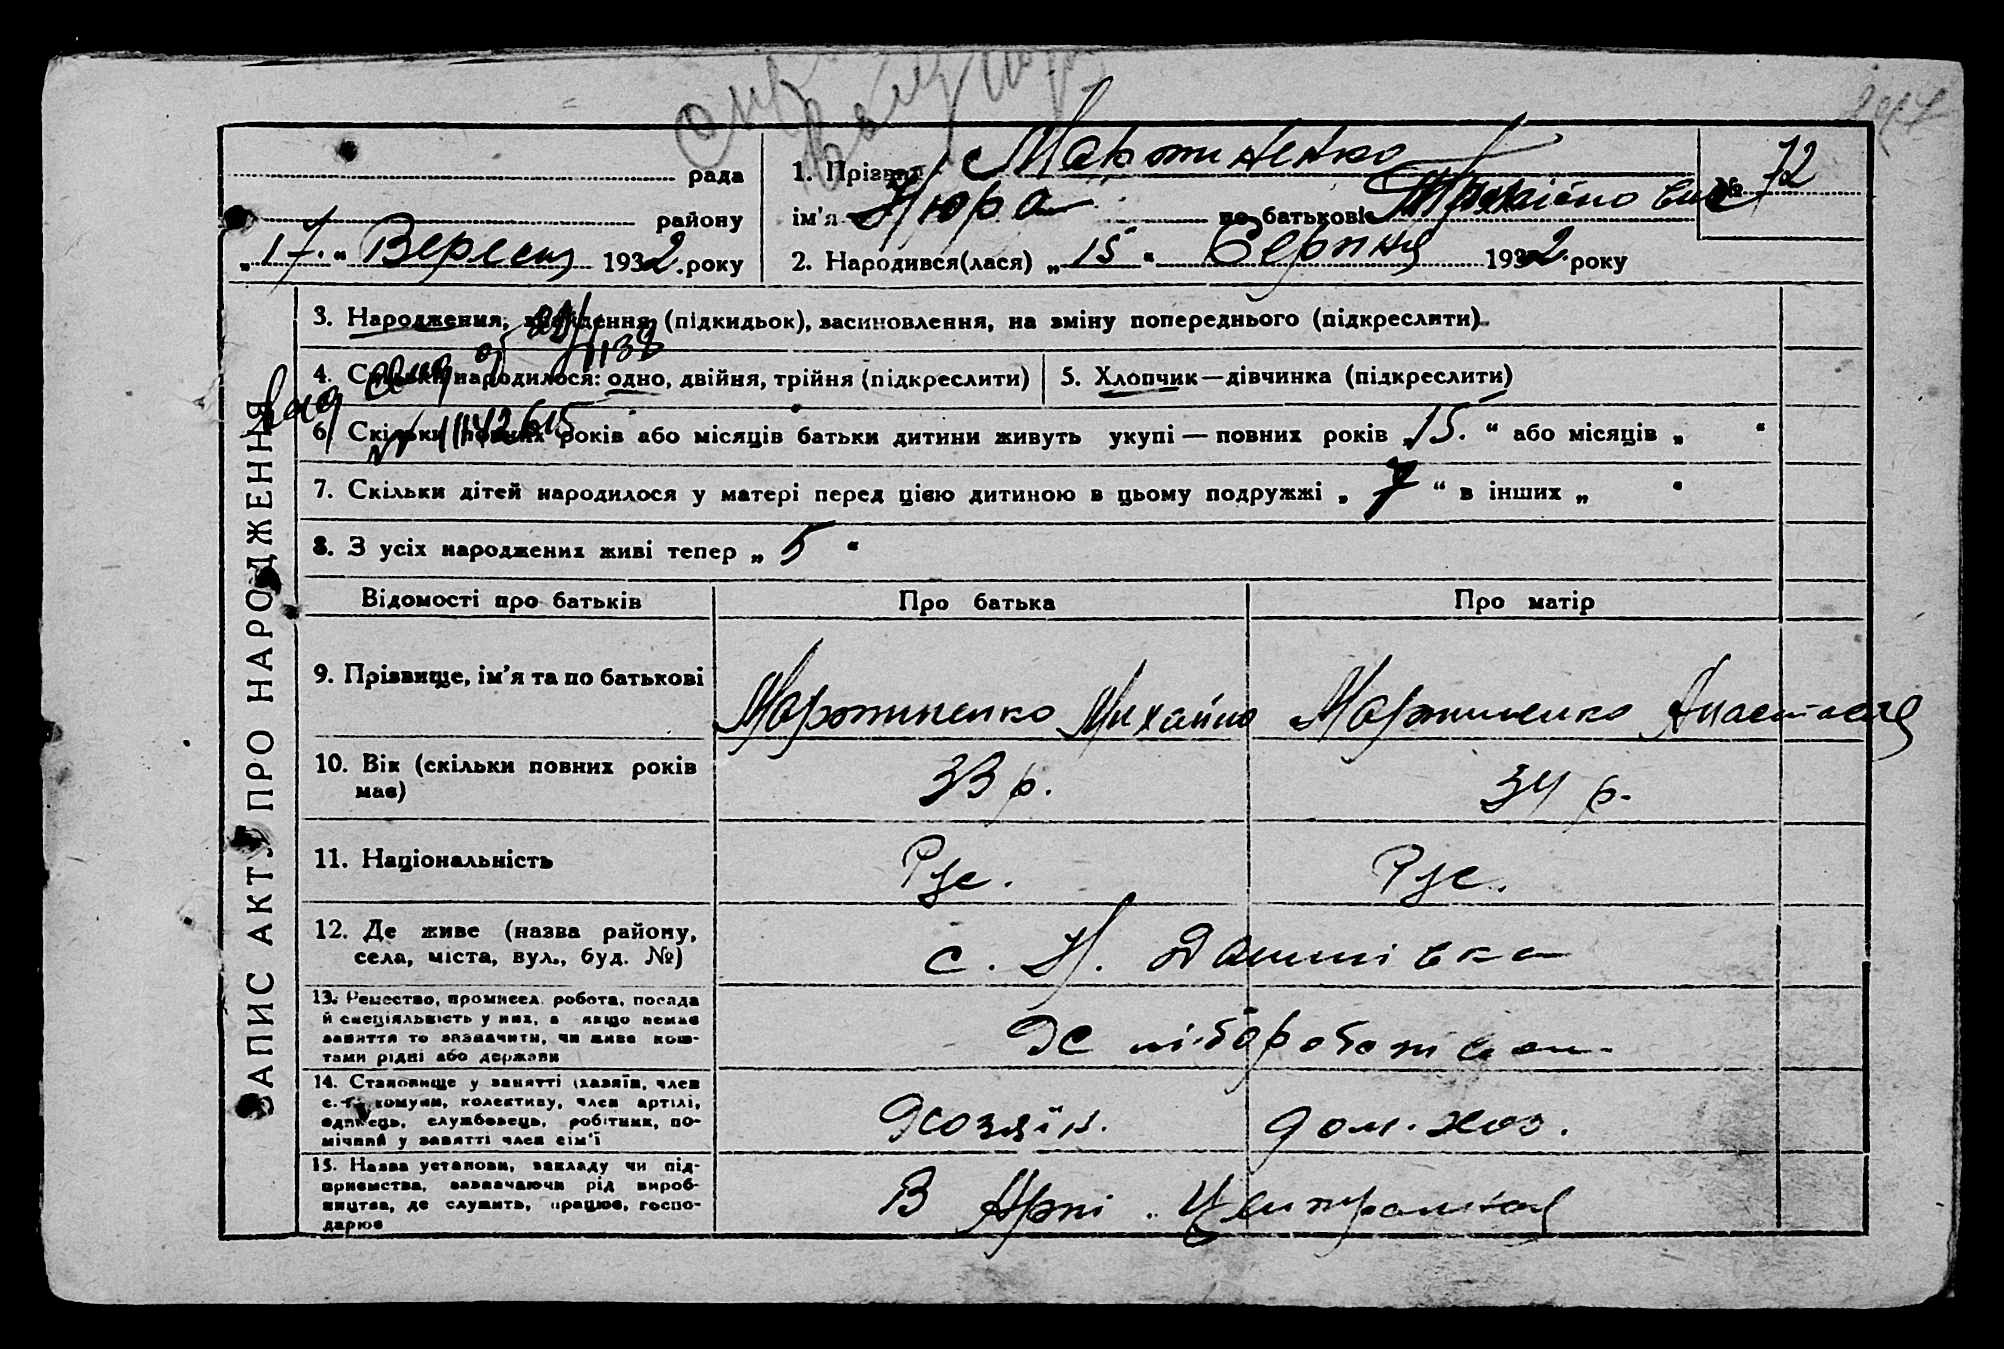 рада
1. Прізвище Мартиненко
№ 72
району
ім'я Нюра по батькові Михайловна
„17.“ Вересня 1932. року
2. Народився(лася) „15“ Серпня 1932. року
ЗАПИС АКТУ ПРО НАРОДЖЕННЯ
3. Народження, знайдення (підкидьок), засиновлення, на зміну попереднього (підкреслити).
4. Скільки народилося: одно, двійня, трійня (підкреслити)
5. Хлопчик—дівчинка (підкреслити)
6. Скільки повних років або місяців батьки дитини живуть укупі — повних років „15.“ або місяців „ “
7. Скільки дітей народилося у матері перед цією дитиною в цьому подружжі „7“ в інших „ “
8. З усіх народжених живі тепер „5“
Відомості про батьків
Про батька
Про матір
9. Прізвище, ім'я та по батькові
Мартиненко Михайло
Мартиненко Анастасия
10. Вік (скільки повних років має)
33 р.
34 р.
11. Національність
Рус.
Рус.
12. Де живе (назва району, села, міста, вул., буд. №)
с. Н. Дашківка
13. Ремество, промисел, робота, посада й спеціяльність у них, а якщо немає заняття то зазначити, чи живе коштами рідні або держави
Хліборобством
14. Становище у занятті (хазяїн, член с.-г. комуни, колективу, член артілі, одинець, службовець, робітник, помічний у занятті член сім'ї
Хозяїн.
дом. хоз.
15. Назва установи, закладу чи підприємства, зазначаючи рід виробництва, де служить, працює, господарює
В Арті. Центральная